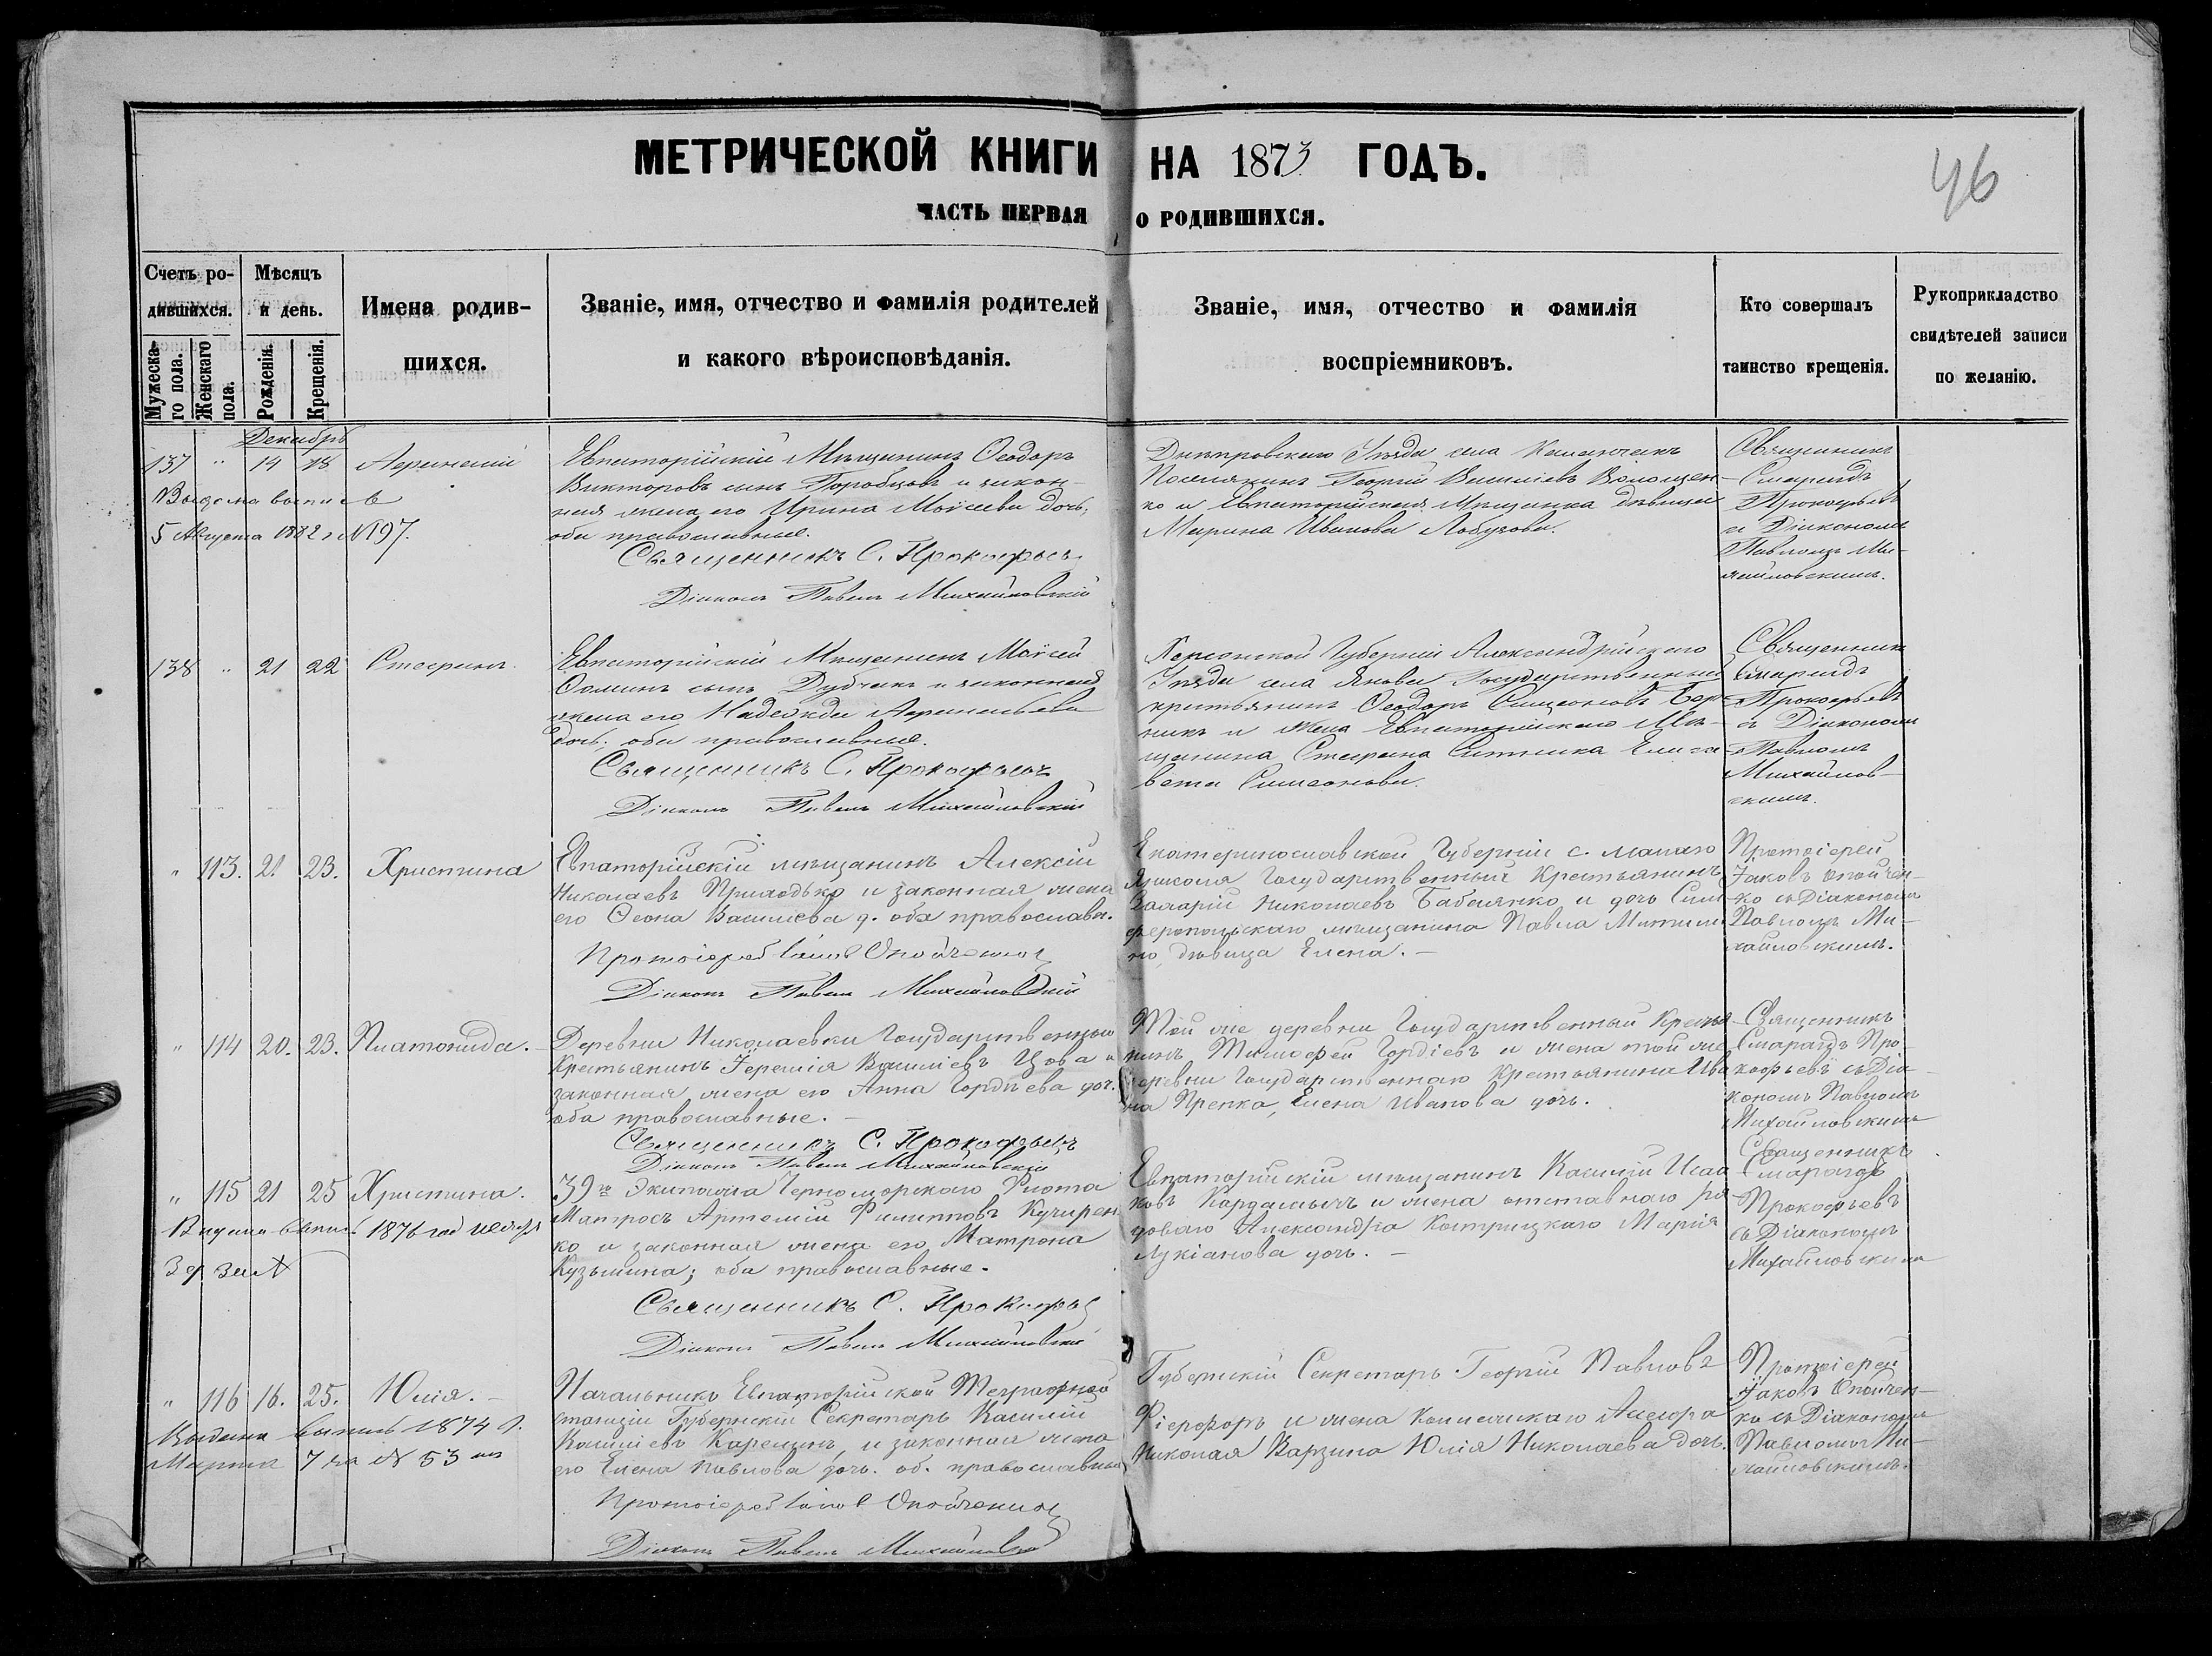 МЕТРИЧЕСКОЙ КНИГИ НА 1873 ГОДЪ.
46
ЧАСТЬ ПЕРВАЯ О РОДИВШИХСЯ.
Счетъ родившихся.
Мужескаго пола.
Женскаго пола.
Мѣсяцъ и день.
Рожденія.
Крещенія.
Имена родившихся.
Званіе, имя, отчество и фамилія родителей
и какого вѣроисповѣданія.
Званіе, имя, отчество и фамилія
воспріемниковъ.
Кто совершалъ
таинство крещенія.
Рукоприкладство
свидѣтелей записи
по желанію.
Декабрь
137 " 14 18
Выдана выпись
5 Августа 1882 г. №197.
Евпаторійскій Мѣщанинъ Ѳеодоръ
Викторовъ сынъ и закон-
ная жена его Ирина Моісеева дочь,
оба православные.
Священникъ С. Прокофьевъ
Діаконъ Павелъ Михайловскій
Днѣпровскаго Уѣзда села
Поселянинъ Георгій Василіевъ Волощен-
ко и Евпаторійская Мѣщанка дѣвица
Марина Иванова
Священникъ
Смарагдъ
Прокофьевъ
съ Діакономъ
Павломъ Ми-
хайловскимъ.
138 " 21 22 Стефанъ
Евпаторійскій Мѣщанинъ Моісей
Ѳоминъ сынъ и законная
жена его Надежда
дочь; оба православные.
Священникъ С. Прокофьевъ
Діаконъ Павелъ Михайловскій
Херсонской Губерніи Александрійскаго
Уѣзда села Государственный
крестьянинъ Ѳеодоръ Симеоновъ
и жена Евпаторійскаго Мѣ-
щанина Стефана Елиса-
вета Симеонова.
Священникъ
Смарагдъ
Прокофьевъ
съ Діакономъ
Павломъ
Михайлов-
скимъ.
" 113. 21. 23. Христина
Евпаторійскій мѣщанинъ Алексій
Николаевъ Приходько и законная жена
его Ѳеона Василіева д. оба православн.
Протоіерей Іаковъ Опойченко
Діаконъ Павелъ Михайловскій
Екатеринославской Губерніи с. малаго
Государственный Крестьянинъ
Николаевъ и дочь Сим-
феропольскаго мѣщанина Павла
дѣвица Елена. —
Протоіерей
Іаковъ Опойчен-
ко съ Діакономъ
Павломъ Ми-
хайловскимъ.
" 114 20. 23. Платонида.
Деревни Николаевки Государственный
Крестьянинъ Іеремія Василіевъ и
законная жена его Анна Гордѣева доч.
оба православные. —
Священникъ С. Прокофьевъ
Діаконъ Павелъ Михайловскій
Той же деревни Государственный Кресть-
нинъ Тимофей Гордіевъ и жена той же
деревни Государственнаго Крестьянина Ива
на Елена Иванова дочь.
Священникъ
Смарагдъ Про-
кофьевъ съ Діа-
кономъ Павломъ
Михайловскимъ
" 115 21 25 Христина.
Выдана выпись 1876 год
39го Экипажа Черноморскаго Флота
Матросъ Артемій Филипповъ Кучерен
ко и законная жена его Матрона
Кузьмина; оба православные.
Священникъ С. Прокофьевъ
Діаконъ Павелъ Михайловскій
Евпаторійскій мѣщанинъ Василій Исаа
ковъ и жена отставнаго ря
доваго Александра Марія
Лукіанова дочь. —
Священникъ
Смарагдъ
Прокофьевъ
съ Діакономъ
Михайловскимъ
" 116 16. 25. Юлія. —
Выдана выпись 1874 г.
Марта 7 за № 53 мъ
Начальникъ Евпаторійской Телеграфной
станціи Губернскій Секретарь Василій
Василіевъ и законная жена
его Елена Павлова дочь. об. православные
Протоіерей Іаковъ Опойченко
Діаконъ Павелъ Михайловскій
Губернскій Секретарь Георгій Павловъ
и жена
Николая Варзина Юлія Николаева дочь.
Протоіерей
Іаковъ Опойчен-
ко съ Діакономъ
Павломъ Ми-
хайловскимъ.